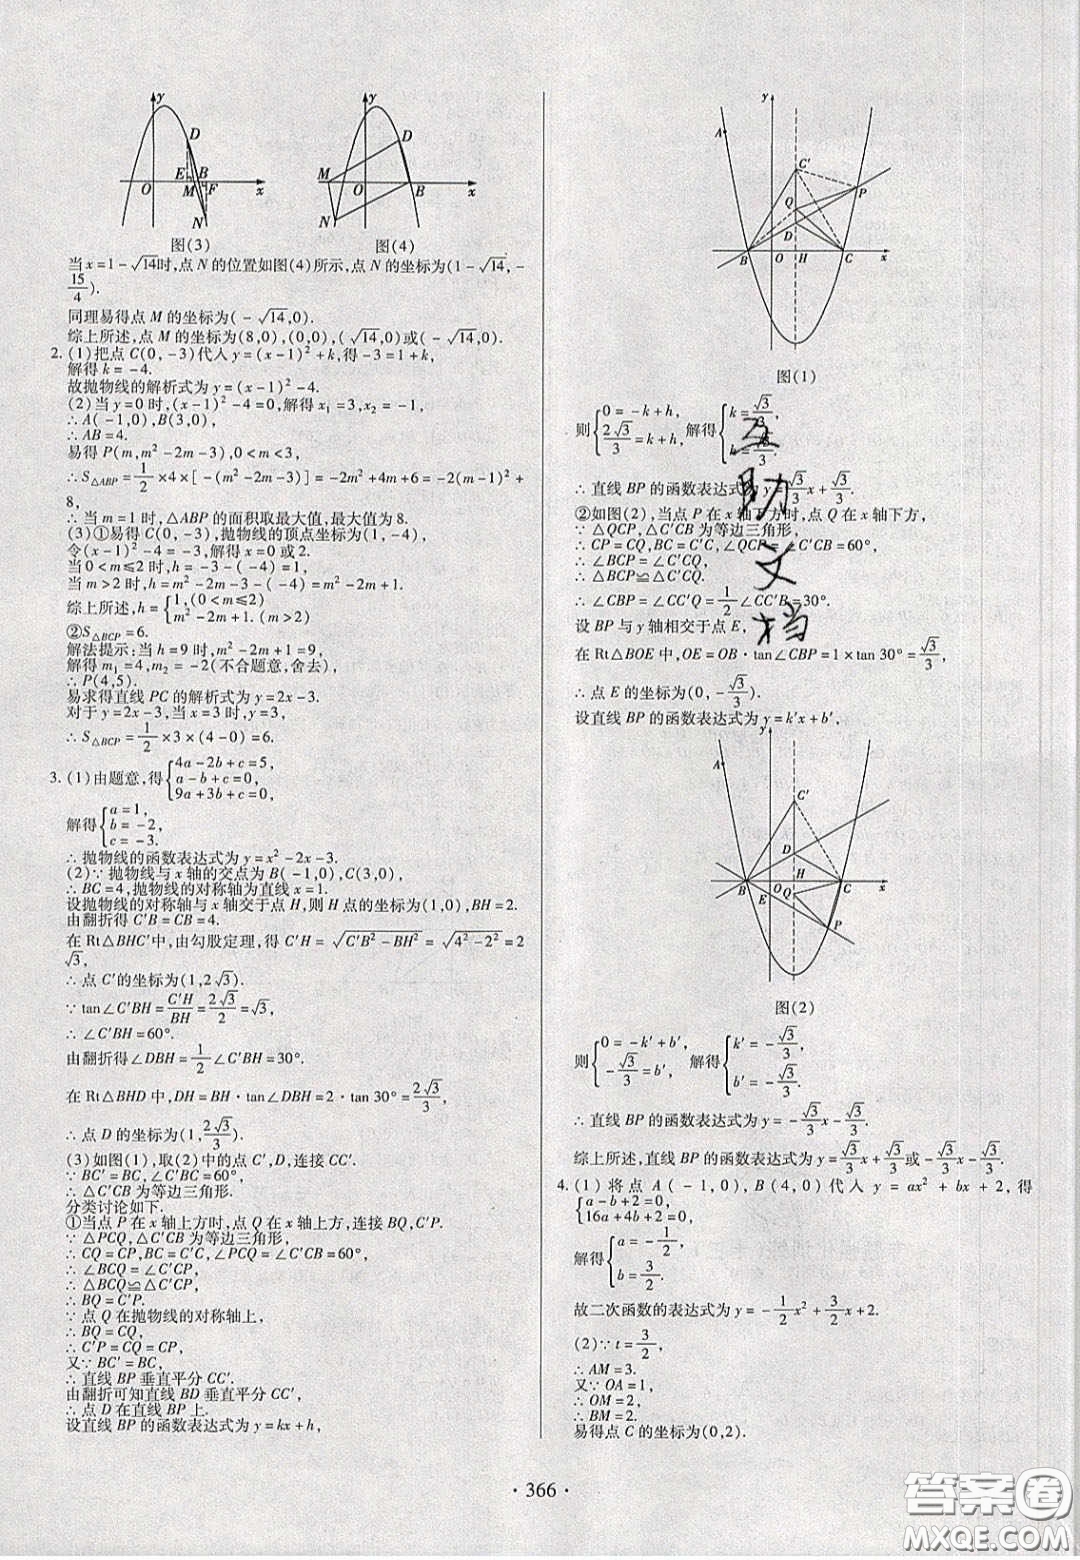 图(3)
图(4)
当x=1-√14时,点N的位置如图(4)所示,点N的坐标为(1-√14,-
15/4).
同理易得点M的坐标为(-√14,0).
综上所述,点M的坐标为(8,0),(0,0),(√14,0)或(-√14,0).
2.(1)把点C(0,-3)代入y=(x-1)²+k,得-3=1+k,
解得k=-4.
故抛物线的解析式为y=(x-1)²-4.
(2)当y=0时,(x-1)²-4=0,解得x₁=3,x₂=-1,
∴A(-1,0),B(3,0),
∴AB=4.
易得P(m,m²-2m-3),0<m<3,
∴S△ABP=1/2×4×[-(m²-2m-3)]=-2m²+4m+6=-2(m-1)²+
8,
∴当m=1时,△ABP的面积取最大值,最大值为8.
(3)①易得C(0,-3),抛物线的顶点坐标为(1,-4),
令(x-1)²-4=-3,解得x=0或2.
当0<m≤2时,h=-3-(-4)=1,
当m>2时,h=m²-2m-3-(-4)=m²-2m+1.
综上所述,h={1,(0<m≤2)
m²-2m+1.(m>2)
②S△BCP=6.
解法提示:当h=9时,m²-2m+1=9,
解得m₁=4,m₂=-2(不合题意,舍去),
∴P(4,5).
易求得直线PC的解析式为y=2x-3.
对于y=2x-3,当x=3时,y=3,
∴S△BCP=1/2×3×(4-0)=6.
3.(1)由题意,得{4a-2b+c=5,
a-b+c=0,
9a+3b+c=0,
解得{a=1,
b=-2,
c=-3.
∴抛物线的函数表达式为y=x²-2x-3.
(2)∵抛物线与x轴的交点为B(-1,0),C(3,0),
∴BC=4,抛物线的对称轴为直线x=1.
设抛物线的对称轴与x轴交于点H,则H点的坐标为(1,0),BH=2.
由翻折得C'B=CB=4.
在Rt△BHC'中,由勾股定理,得C'H=√(C'B²-BH²)=√(4²-2²)=2
√3,
∴点C'的坐标为(1,2√3).
∵tan∠C'BH=C'H/BH=2√3/2=√3,
∴∠C'BH=60°.
由翻折得∠DBH=1/2∠C'BH=30°.
在Rt△BHD中,DH=BH·tan∠DBH=2·tan30°=2√3/3,
∴点D的坐标为(1,2√3/3).
(3)如图(1),取(2)中的点C',D,连接CC'.
∵BC'=BC,∠C'BC=60°,
∴△C'CB为等边三角形.
分类讨论如下.
①当点P在x轴上方时,点Q在x轴上方,连接BQ,C'P.
∵△PCQ,△C'CB为等边三角形,
∴CQ=CP,BC=C'C,∠PCQ=∠C'CB=60°,
∴∠BCQ=∠C'CP,
∴△BCQ≌△C'CP.
∴BQ=C'P.
∵点Q在抛物线的对称轴上,
∴BQ=CQ,
∴C'P=CQ=CP,
又∵BC'=BC,
∴直线BP垂直平分CC',
由翻折可知直线BD垂直平分CC',
∴点D在直线BP上.
设直线BP的函数表达式为y=kx+h,
图(1)
则{0=-k+h,
2√3/3=k+h,解得{k=√3/3,
h=√3/3.
∴直线BP的函数表达式为y=√3/3x+√3/3.
②如图(2),当点P在x轴下方时,点Q在x轴下方,
∵△QCP,△C'CB为等边三角形,
∴CP=CQ,BC=C'C,∠QCP=∠C'CB=60°,
∴∠BCP=∠C'CQ,
∴△BCP≌△C'CQ.
∴∠CBP=∠CC'Q=1/2∠CC'B=30°.
设BP与y轴相交于点E,
在Rt△BOE中,OE=OB·tan∠CBP=1×tan30°=√3/3,
∴点E的坐标为(0,-√3/3).
设直线BP的函数表达式为y=k'x+b',
图(2)
则{0=-k'+b',
-√3/3=b',解得{k'=-√3/3,
b'=-√3/3.
∴直线BP的函数表达式为y=-√3/3x-√3/3.
综上所述,直线BP的函数表达式为y=√3/3x+√3/3或-√3/3x-√3/3.
4.(1)将点A(-1,0),B(4,0)代入y=ax²+bx+2,得
{a-b+2=0,
16a+4b+2=0,
解得{a=-1/2,
b=3/2.
故二次函数的表达式为y=-1/2x²+3/2x+2.
(2)∵t=3/2,
∴AM=3.
又∵OA=1,
∴OM=2,
∴BM=2.
易得点C的坐标为(0,2).
·366·
互助文档
答案圈
MXQE.COM